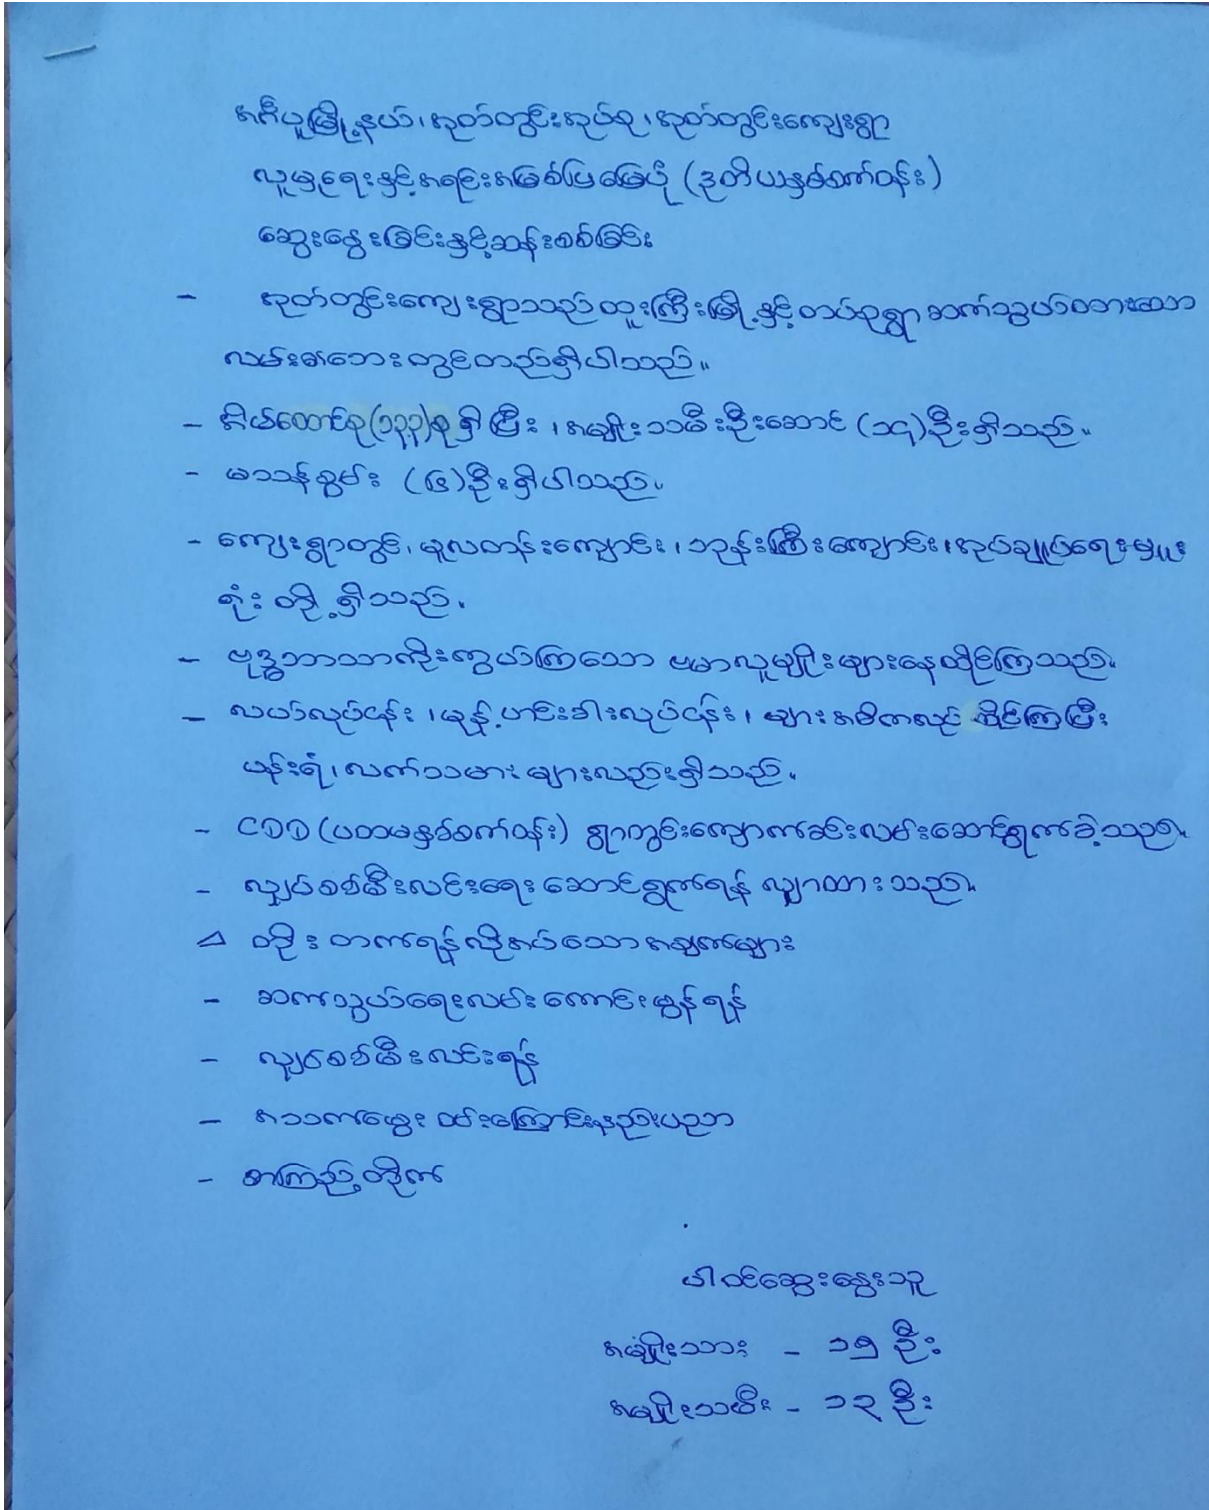 အင်္ဂပူမြို့နယ်၊ အုတ်တွင်းအုပ်စု၊ အုတ်တွင်းကျေးရွာ
လူမှုရေးနှင့်အရင်းအမြစ်ပြမြေပုံ (ဒုတိယနှစ်စက်ဝန်း)
ဆွေးနွေးခြင်းနှင့်ဆန်းစစ်ခြင်း
- အုတ်တွင်းကျေးရွာသည်ထူးကြီးမြို့နှင့်တပ်စုရွာဆက်သွယ်ထားသော
လမ်းဘေးတွင်တည်ရှိပါသည်။
- အိမ်ထောင်စု(၁၃၃)စုရှိပြီး၊ အမျိုးသမီးဦးဆောင် (၁၄)ဦးရှိသည်။
- မသန်စွမ်း (၆)ဦးရှိပါသည်။
- ကျေးရွာတွင်၊ မူလတန်းကျောင်း၊ ဘုန်းကြီးကျောင်း၊ အုပ်ချုပ်ရေးမှူး
ရုံး တို့ရှိသည်။
- ဗုဒ္ဓဘာသာကိုးကွယ်ကြသော ဗမာလူမျိုးများနေထိုင်ကြသည်။
- လယ်လုပ်ငန်း၊ မုန့်ဟင်းခါးလုပ်ငန်း၊ များအဓိကလုပ်ကိုင်ကြပြီး
ပန်းရံ၊ လက်သမားများလည်းရှိသည်။
- CDD (ပထမနှစ်စက်ဝန်း) ရွာတွင်းကျောက်ခင်းလမ်းဆောင်ရွက်ခဲ့သည်။
- လျှပ်စစ်မီးလင်းရေး ဆောင်ရွက်ရန် လျှာထားသည်။
⊿ တိုးတက်ရန်လိုအပ်သောအချက်များ
- ဆက်သွယ်ရေးလမ်းကောင်းမွန်ရန်
- လျှပ်စစ်မီးလင်းရန်
- အသက်မွေးဝမ်းကြောင်းနည်းပညာ
- စာကြည့်တိုက်
ပါဝင်ဆွေးနွေးသူ
အမျိုးသား - ၁၅ ဦး
အမျိုးသမီး - ၁၃ ဦး